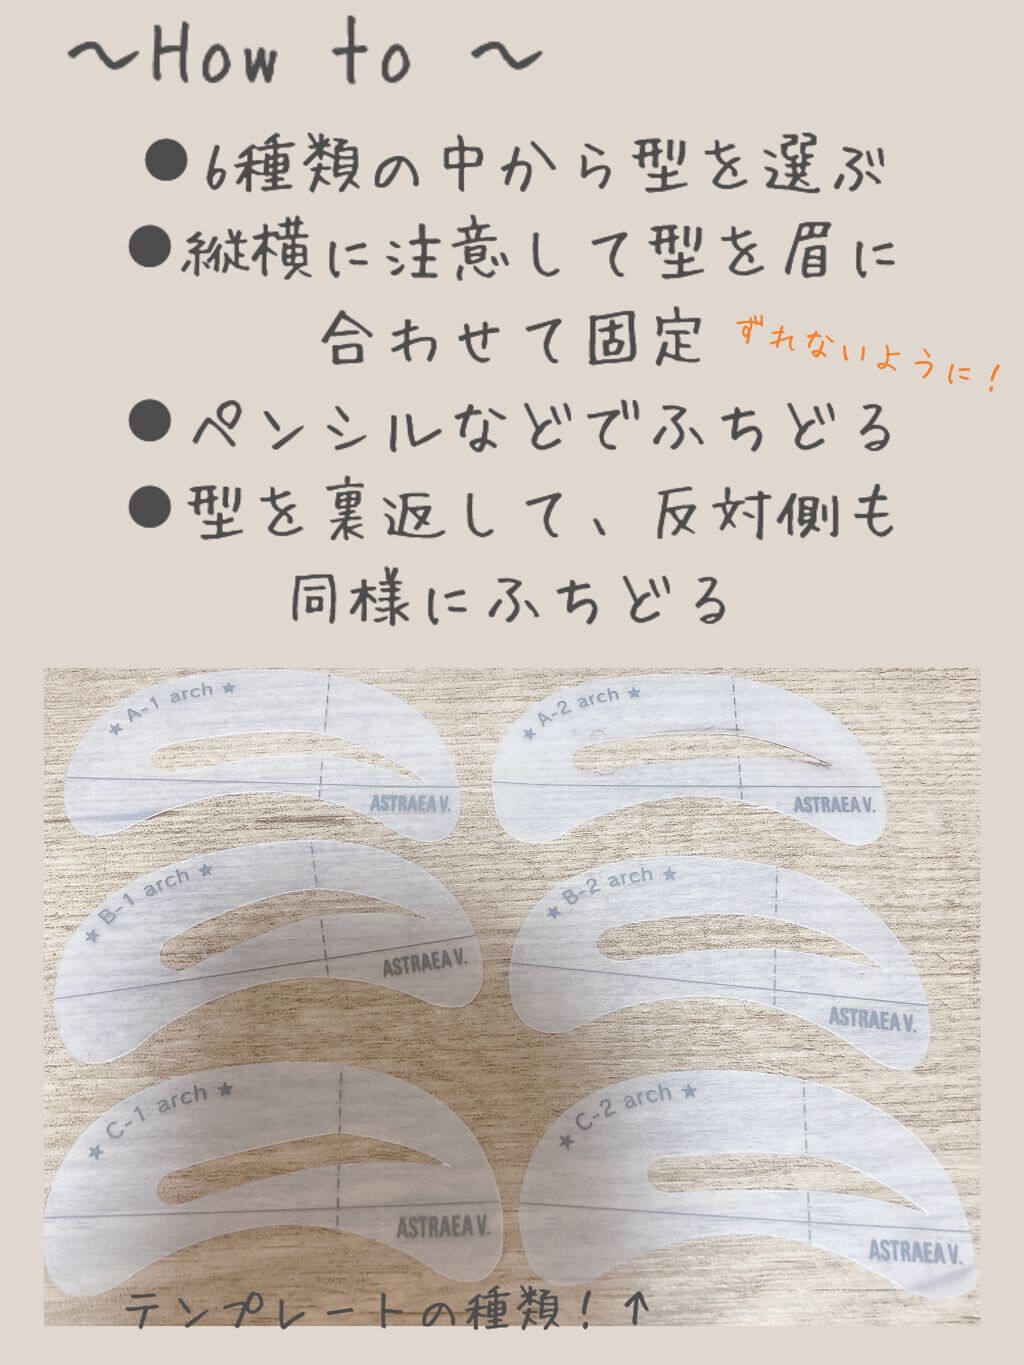 ～How to ～
●6種類の中から型を選ぶ
●縦横に注意して型を眉に
合わせて固定
ずれないように！
●ペンシルなどでふちどる
●型を裏返して、反対側も
同様にふちどる
★ A-1 arch ★
ASTRAEA V.
★ A-2 arch ★
ASTRAEA V.
★ B-1 arch ★
ASTRAEA V.
★ B-2 arch ★
ASTRAEA V.
★ C-1 arch ★
ASTRAEA V.
★ C-2 arch ★
ASTRAEA V.
テンプレートの種類！↑